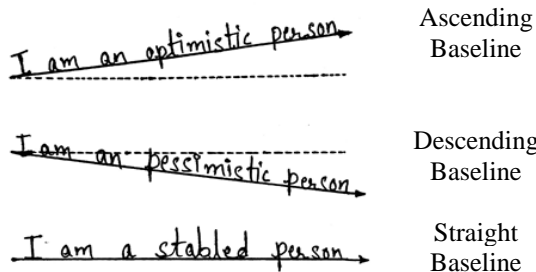 I am an optimistic person
Ascending
Baseline
I am an pessimistic person
Descending
Baseline
I am a stabled person
Straight
Baseline